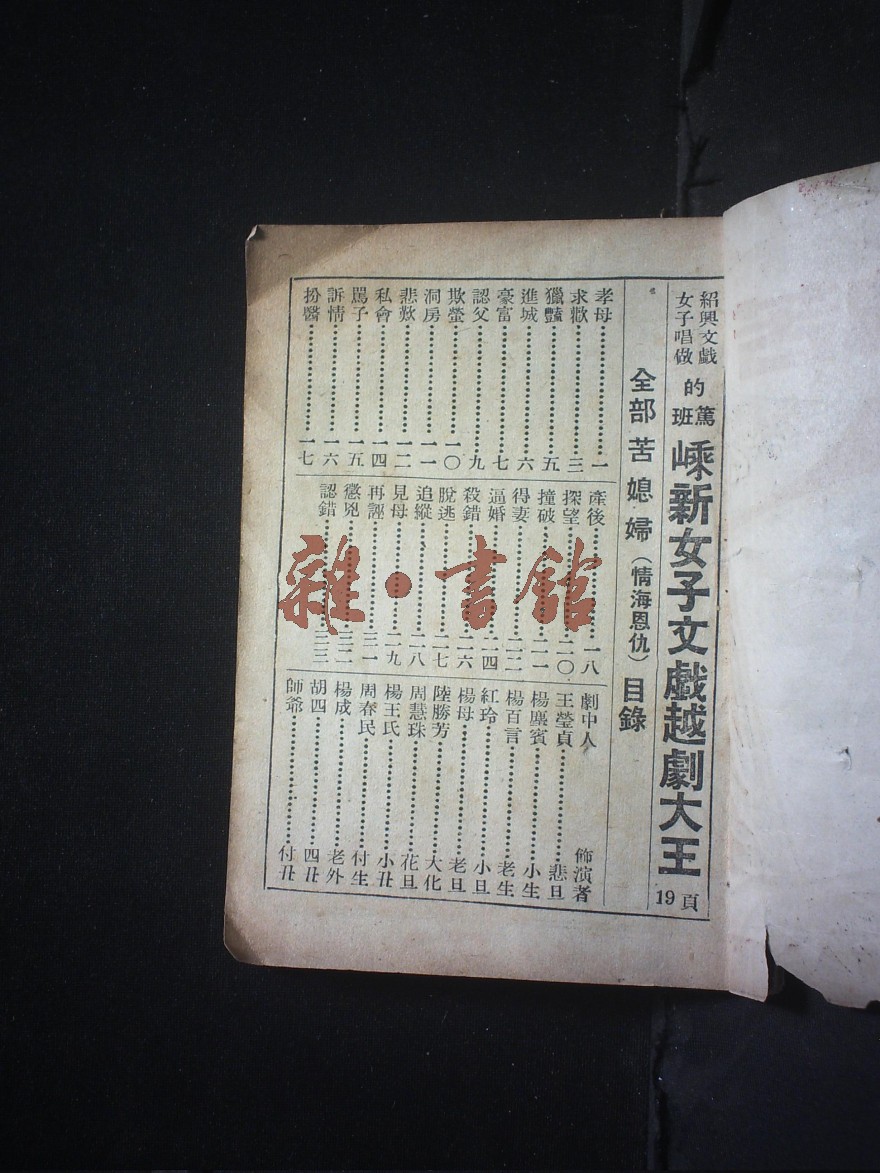 紹興文戲
女子唱做
的篤班
嵊新女子文戲越劇大王
19頁
全部苦媳婦（情海恩仇）目錄
孝母⋯⋯一
求歡⋯⋯三
獵豔⋯⋯五
進城⋯⋯六
豪富⋯⋯七
認父⋯⋯九
欺瑩⋯⋯一〇
洞房⋯⋯一一
悲歎⋯⋯一二
私會⋯⋯一四
罵子⋯⋯一五
訴情⋯⋯一六
扮醫⋯⋯一七
產後⋯⋯一八
探望⋯⋯二〇
撞破⋯⋯二一
得妻⋯⋯二二
逼婚⋯⋯二四
殺錯⋯⋯二六
脫逃⋯⋯二七
追縱⋯⋯二八
見母⋯⋯二九
再誣⋯⋯三一
懲兇⋯⋯三二
認錯⋯⋯三三
劇中人 飾演者
王瑩貞⋯⋯悲旦
楊塵賓⋯⋯小生
楊百言⋯⋯老生
紅玲⋯⋯小旦
楊母⋯⋯老旦
陸勝芳⋯⋯大化
周慧珠⋯⋯花旦
楊王氏⋯⋯小丑
周春民⋯⋯付生
楊成⋯⋯老外
胡四⋯⋯四丑
師爺⋯⋯付丑
雜·書館